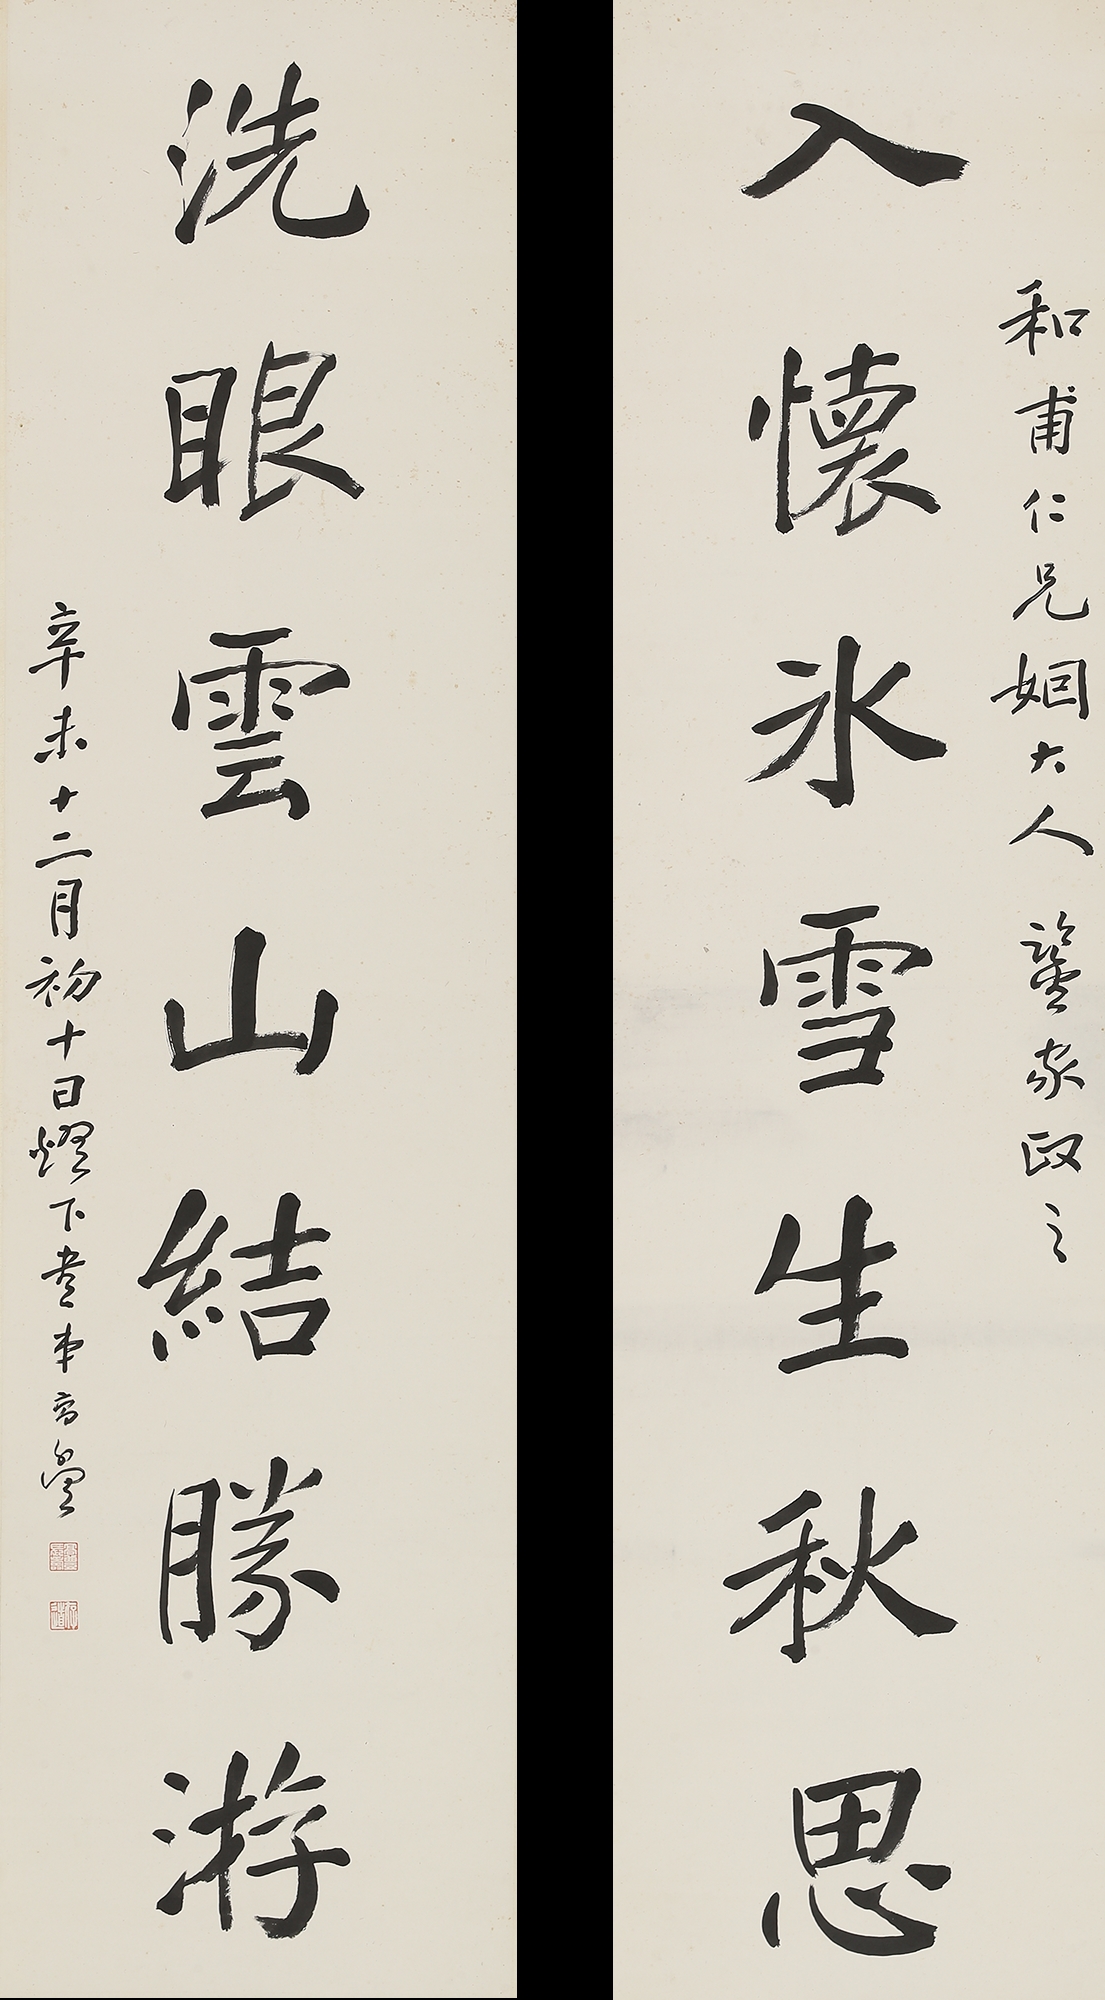 和甫仁兄姻大人鉴家政之
入懷冰雪生秋思
洗眼雲山結勝游
辛未十二月初十日燈下書